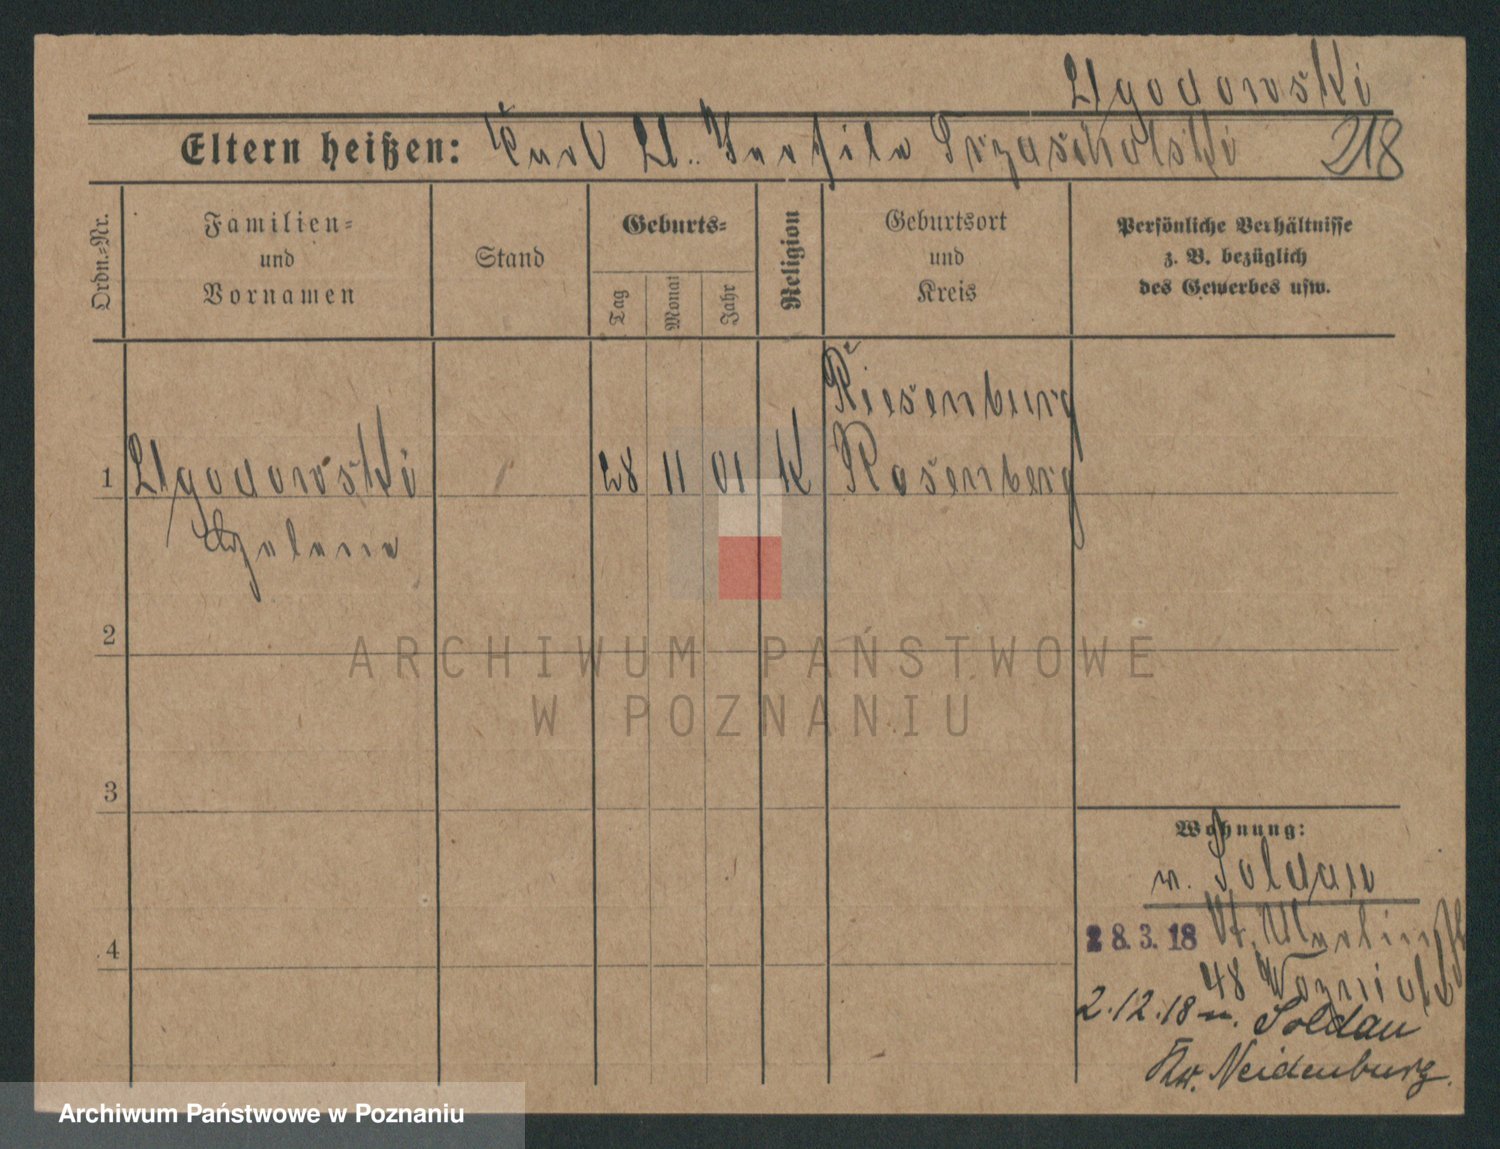 Ugodowski
Eltern heißen: Karl U. Trzaschalski 218
Ordn.-Nr.
Familien-
und
Vornamen
Stand
Geburts-
Tag
Monat
Jahr
Religion
Geburtsort
und
Kreis
Persönliche Verhältnisse
z. B. bezüglich
des Gewerbes usw.
Riesenburg
1 Ugodowski 28 11 01 K Rosenberg
Helene
2
ARCHIWUM PAŃSTWOWE
W POZNANIU
3
4
Wohnung:
n. Soldau
28.3.18 St. Martinstr
48 Wozniak
2.12.18 n. Soldau
Krs. Neidenburg.
Archiwum Państwowe w Poznaniu